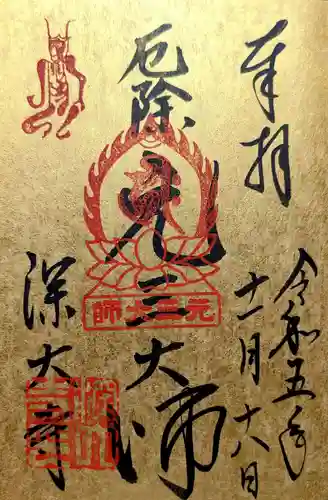 奉拝
令和五年
十一月十八日
厄除
元三大師
師大三元
深大寺